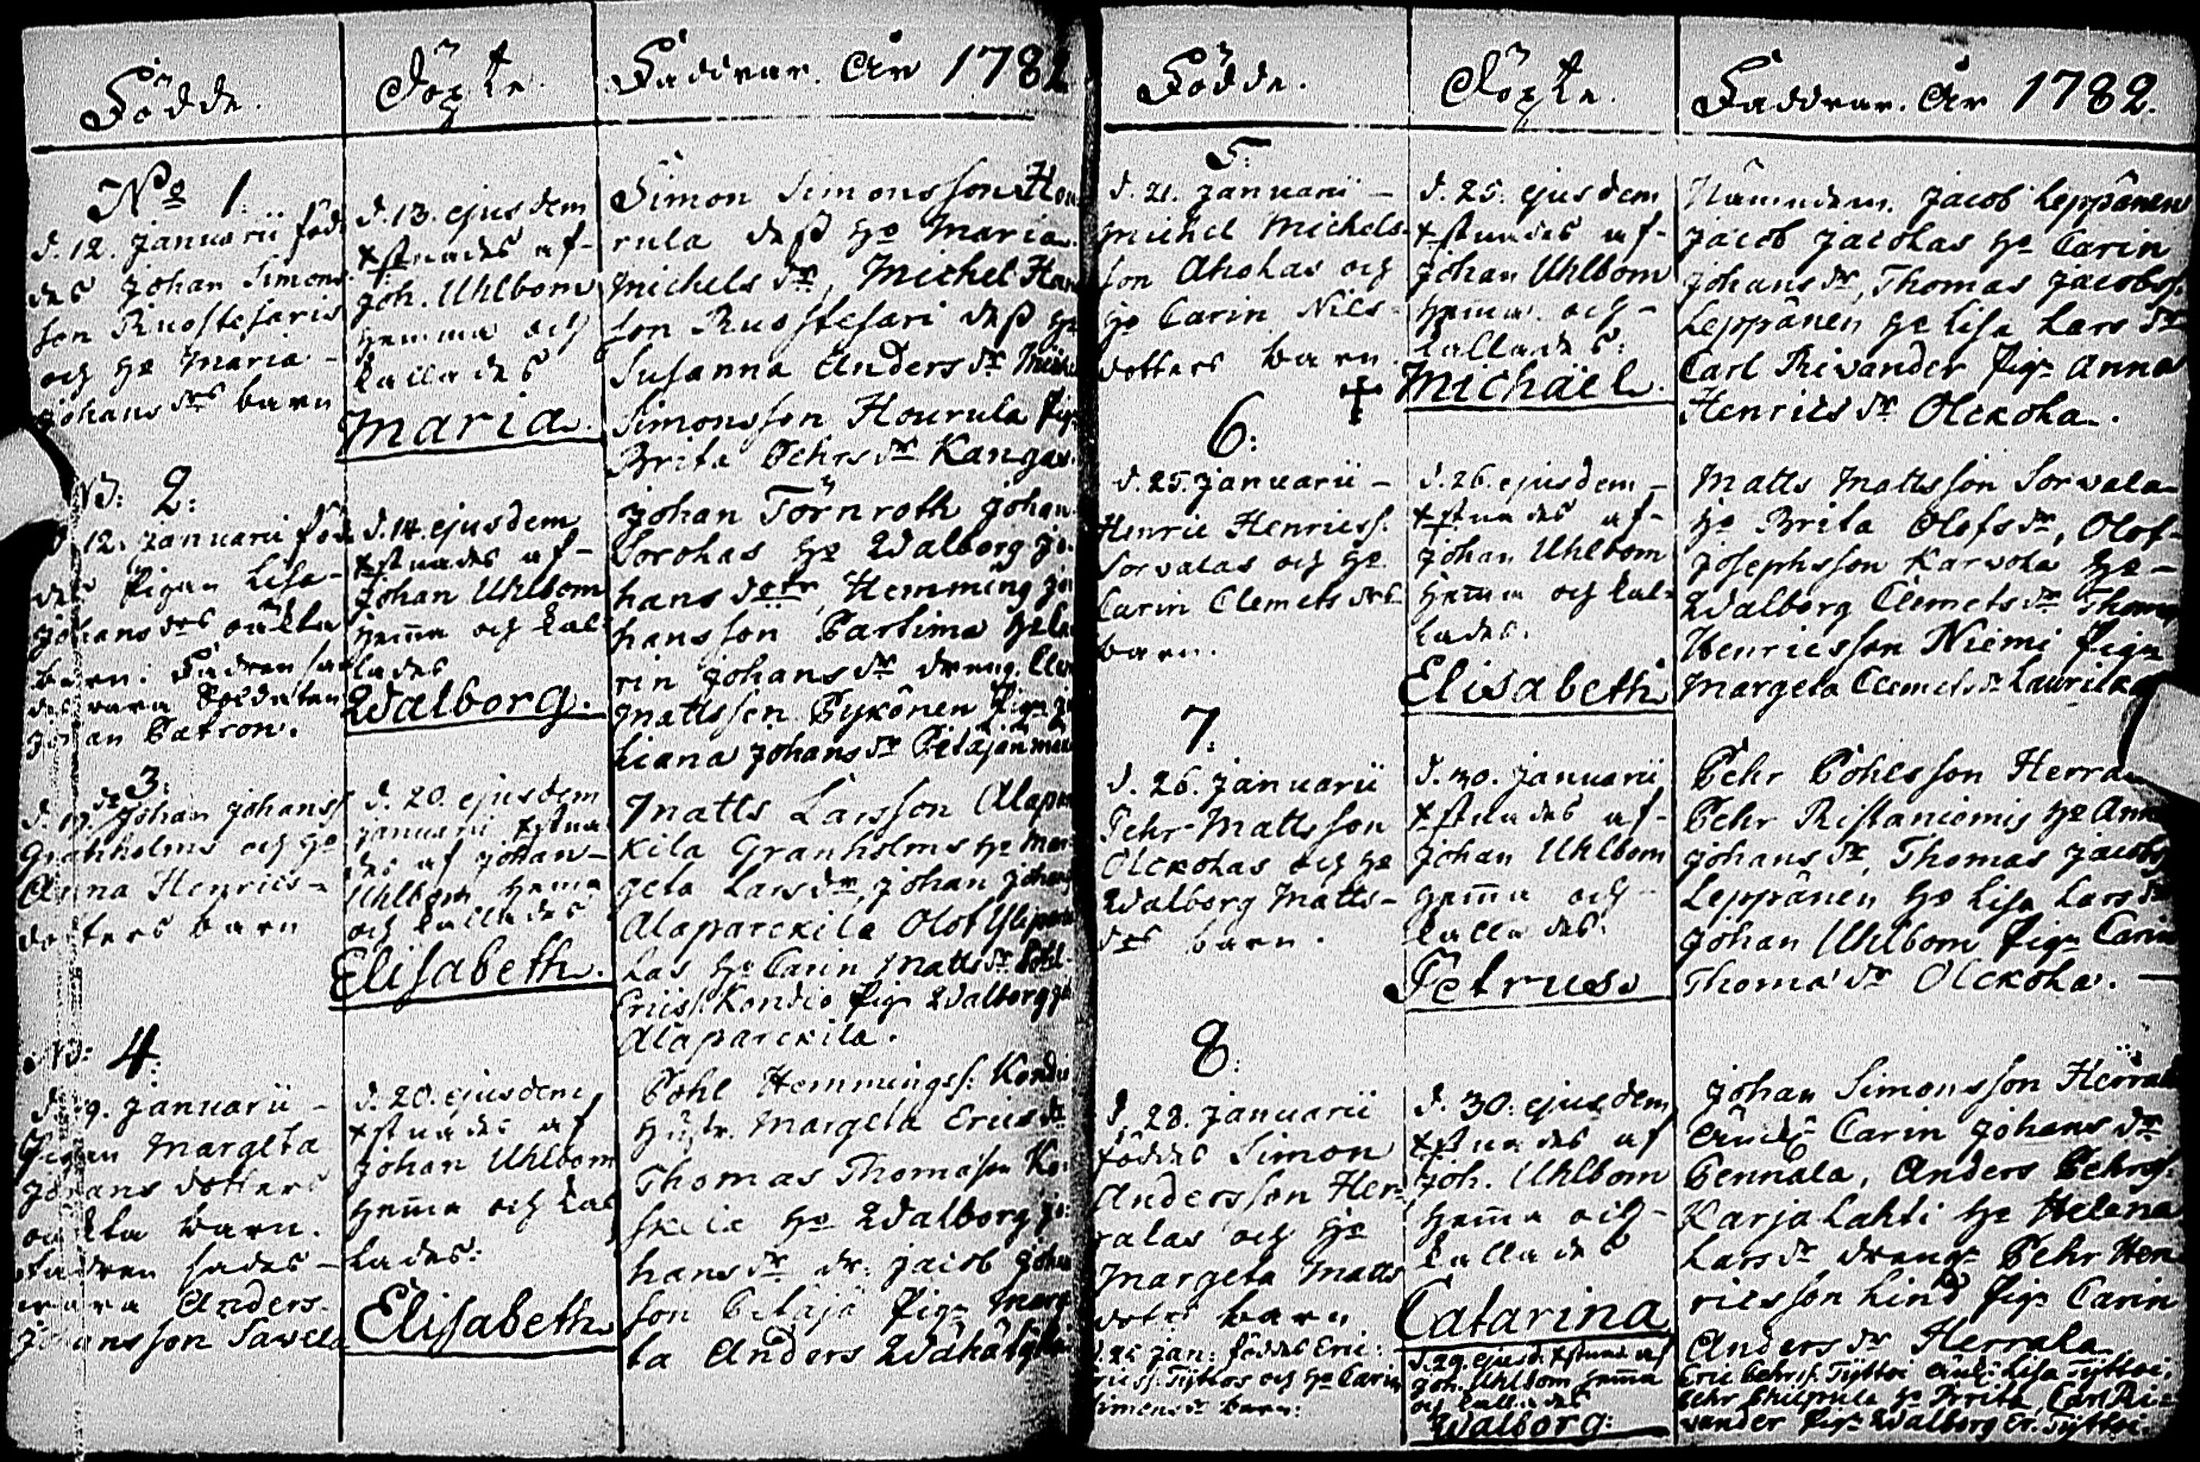 Födde.
Döpte.
Faddrar. År 1782
No 1.
d. 12. Januarii föd-
des Johan Simons-
son Ruostesaris
och H:o Maria
Johans drs barn
d. 13. ejusdem
Xstnades af
Joh. Uhlbom
hemma och
kallades
Maria.
Simon Simonsson Hou-
rula dess H:o Maria
Michels dr, Michel Han
son Ruostesari dess H:o
Susanna Anders dr Michel
Simonsson Hourula Pig:
Brita Pehrs dr Kangas.
N: 2:
d. 12. Januarii föd-
des Pigan Lisa
Johans drs oäkta
barn. Fadren sa
des vara Soldaten
Johan Patron.
d. 14. ejusdem
Xstnades af
Johan Uhlbom
hema och kal-
lades
Walborg.
Johan Törnroth Johan
Sorohas H:o Walborg Jo-
hans dotr, Hemming Jo
hansson Partima H:o Ca
rin Johans dr dreng
Mattsson Pykönen Pig:
liana Johans dr Pitäjänmaa
3:
d. 19. Johan Johanss
Granholms och H:o
Anna Henrics-
dotters barn
d. 20. ejusdem
Januarii Xstna-
des af Johan
Uhlbom hema
och kallades
Elisabeth.
Matts Larsson Alapar
kila Granholms H:o Mar
geta Lars dr, Johan Johans
Alaparckila Olof Ylipar
las H:o Carin Matts dr Pohl
Ericss. Kondio Pig: Walborg
Alaparckila.
N: 4.
d. 19. Januarii
Pigan Margeta
Johans dotters
oäkta barn.
Fadren sades
vara Anders
Johansson Sawela
d. 20. ejusdem
Xstnades af
Johan Uhlbom
hema och kal
lades:
Elisabeth
Pohl Hemmingss: Kondio
Hustr. Margeta Erics dr
Thomas Thomason Ko-
skela H:o Walborg Jo-
hans dr dr: Jacob Johan
son Pitäjä Pig: Marge
ta Anders Wähätylle
Födde.
Döpte.
Faddrar. År 1782.
5:
d. 21. Januarii
Michel Michels-
son Aholas och
H:o Carin Nils-
dotters barn.
d. 25. ejusdem
Xstnades af
Johan Uhlbom
hema och
kallades:
+ Michäel.
Nämndem. Jacob Leppänen
Jacob Jacolas H:o Carin
Johans dr, Thomas Jacobss:
Leppänen H:o Lisa Lars dr
Carl Rivander Pig: Anna
Henrics dr Olckola.
6:
d. 25. Januarii
Henric Henricss:
Sorvalas och H:o
Carin Clemets drs
barn.
d. 26. ejusdem
Xstnades af
Johan Uhlbom
hema och kal-
lades.
Elisabeth
Matts Mattsson Sorvala
H:o Brita Olofs dr, Olof
Josephsson Karvola H:o
Walborg Clemets dr Thomas
Henricsson Niemi Pig:
Margeta Clemets dr Laurila
7:
d. 26. Januarii
Pehr Mattsson
Olckolas och H:o
Walborg Matts-
drs barn.
d. 30. Januarii
Xstnades af
Johan Uhlbom
hema och
kallades.
Petrus
Pehr Pohlsson Herra
Pehr Ristaniemis H:o Anna
Johans dr, Thomas Jacobs
Leppänen H:o Lisa Lars dr
Johan Uhlbom Pig: Carin
Thoma dr Olckola.
8:
d. 28. Januarii
föddes Simon
Andersson Her-
ralas och H:o
Margeta Matts
dotrs barn
d. 30. ejusdem
Xstnades af
Joh. Uhlbom
hema och
kallades
Catarina
Johan Simonsson Herrala
Änck: Carin Johans dr
Pennala, Anders Pehrss:
Karjalahti H:o Helena
Lars dr dreng: Pehr Hen
ricsson Lind Pig: Carin
Anders dr Herrala
d. 25 Jan: föddes Eric:
ricss: Tyttos och H:o Carin
Simons dr barn:
d. 29. ejusd. Xstnad: af
Joh. Uhlbom hema
och kallades
Walborg:
Eric Pehrss. Tyttoi Änck: Lisa Tyttoi.
Pehr H:o Brita, Carl Ri-
vander Pig: Walborg Er. Tyttoi.